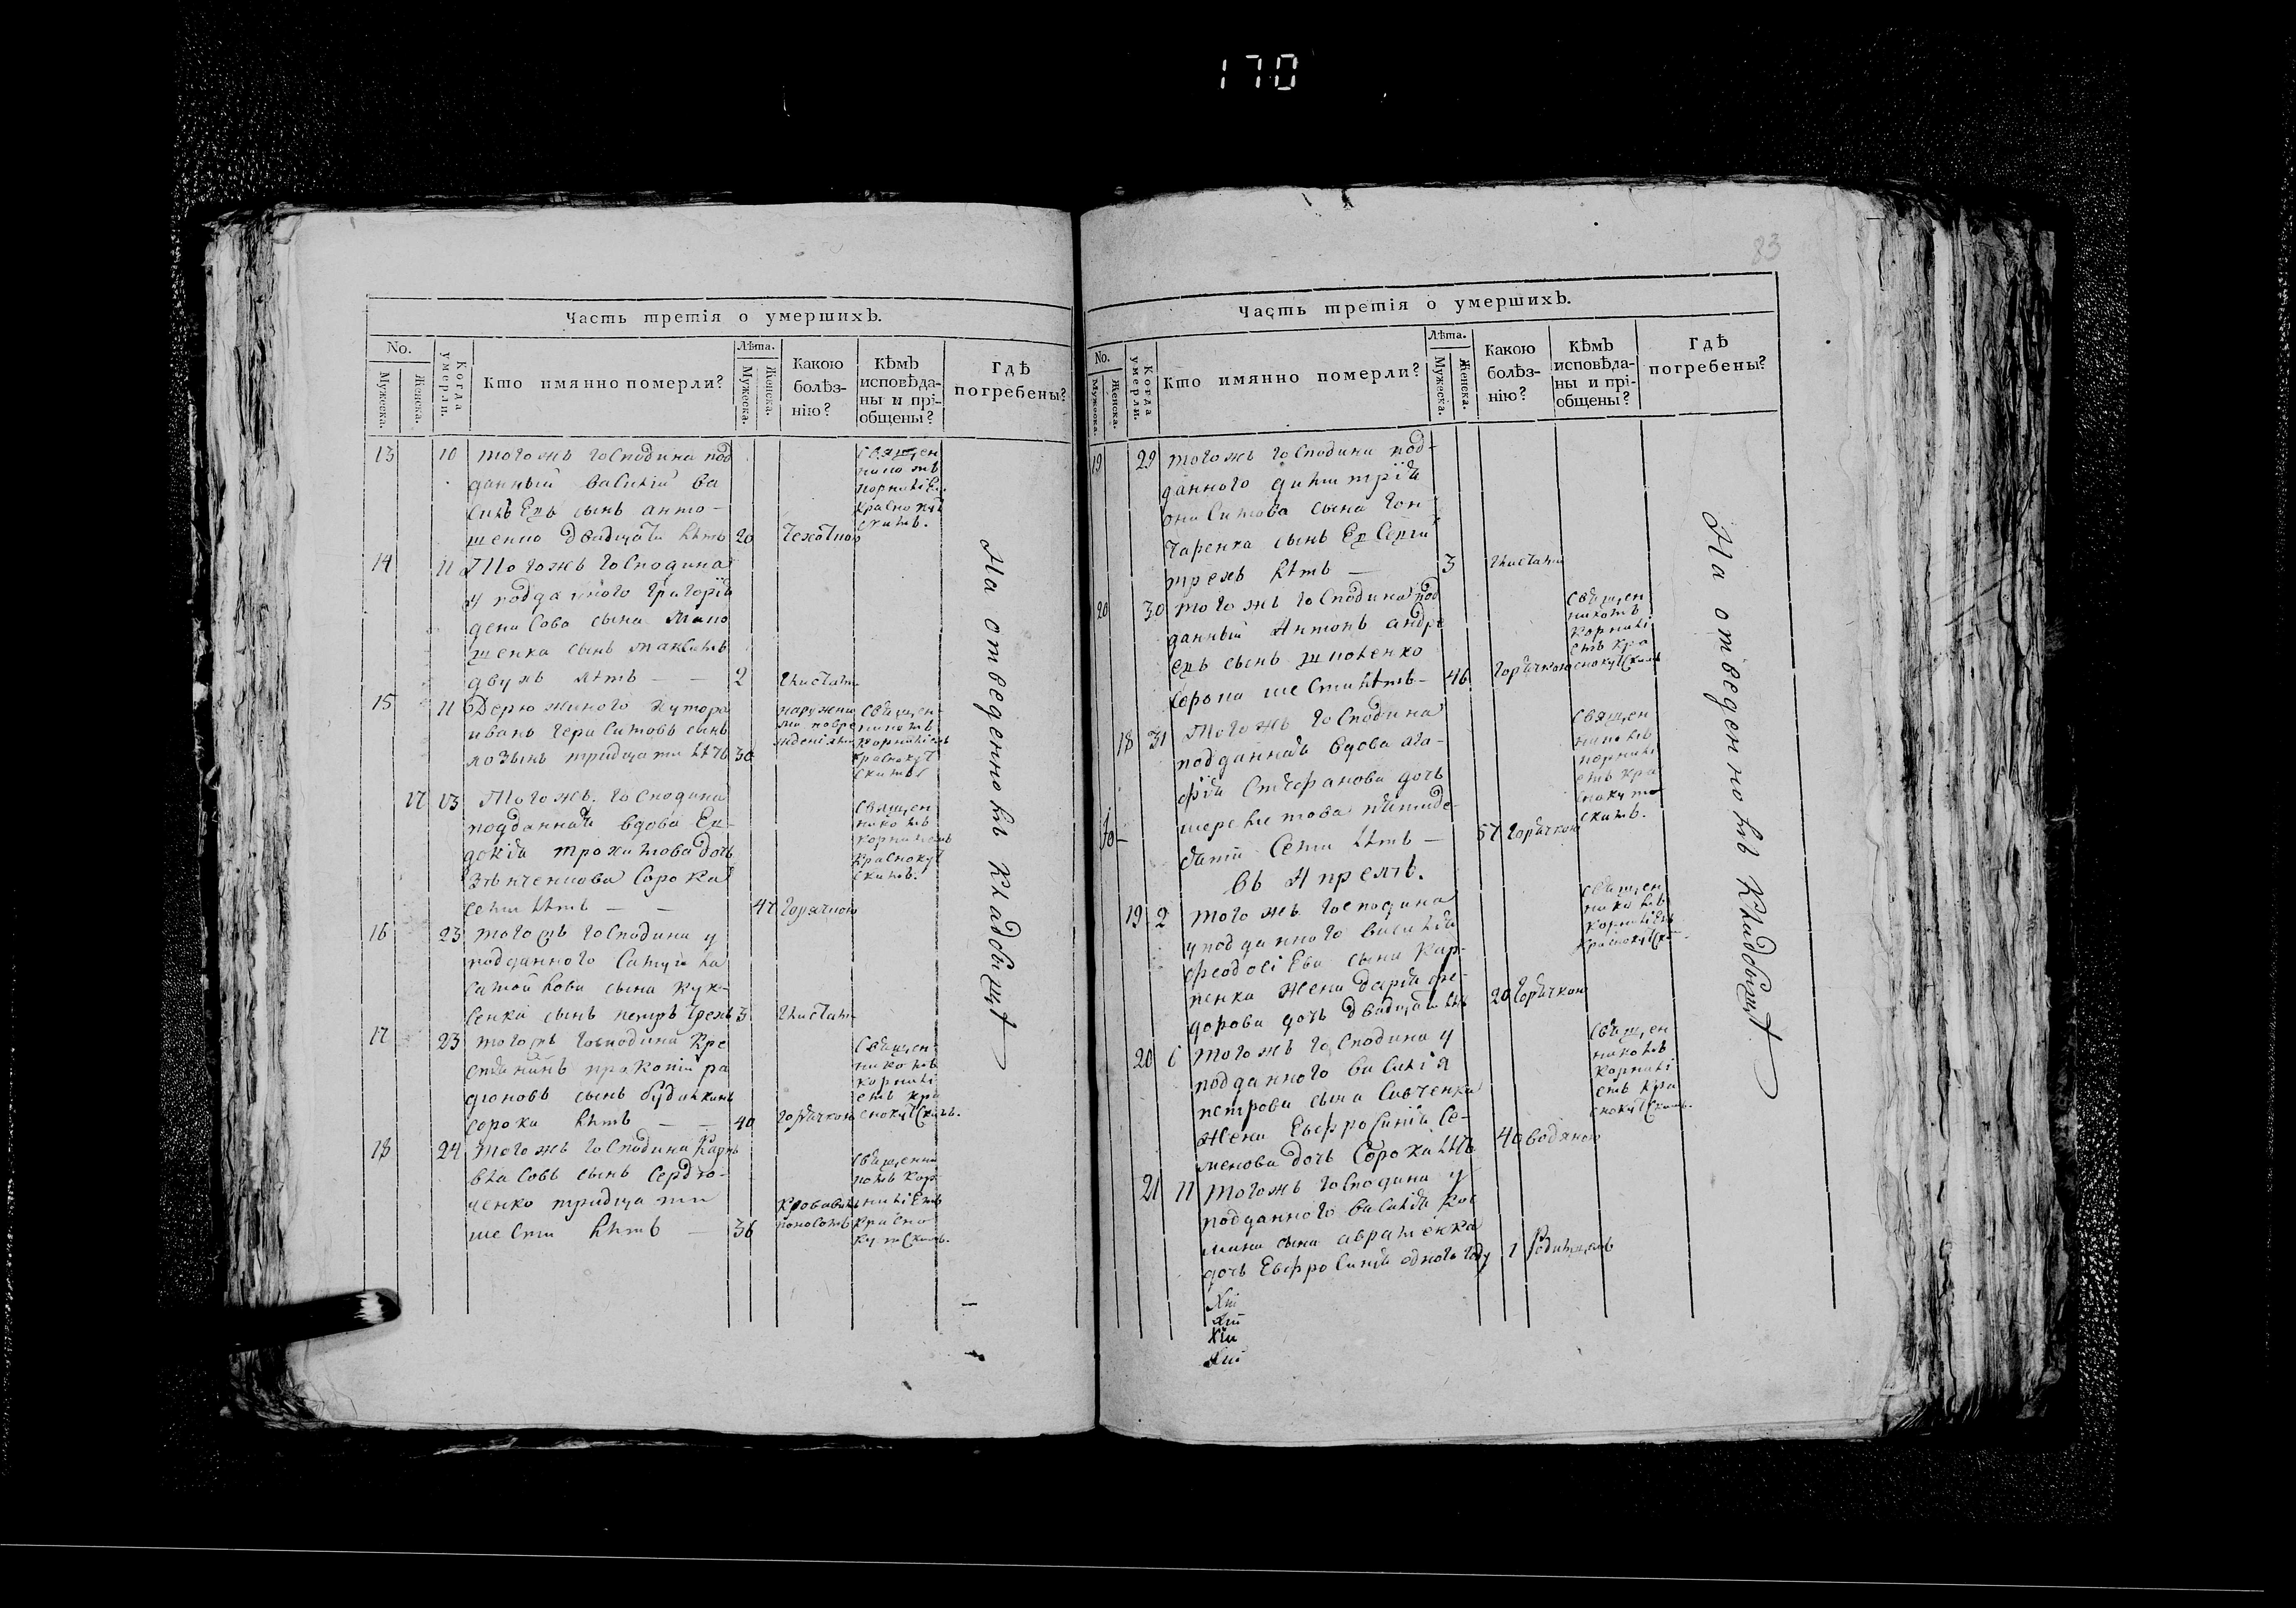 170
83
Часть третія о умершихЪ.
No.
Мужеска.
Женска.
Когда умерли.
Кто имянно померли?
Лѣта.
Мужеска.
Женска.
Какою болѣз-
нію?
КѢмЪ
исповѢда-
ны и прі-
общены?
ГдѢ
погребены?
13 10 тогожъ господина под
данный василій ва
сильевъ сынъ анто-
щенко двадцати лѣтъ 20 чехоткою
священ
никомъ
корниліем
краснокут
скимъ.
14 11 Тогожъ господина
у подданного григорія
денисова сына
щенка сынъ максимъ
двухъ лѣтъ — — 2 глистами
15 11 хутора
иванъ герасимовъ сынъ
лозынъ тридцати лѣтъ 30
наружны
ми повре
жденіями
священ
никомъ
корниліемъ
краснокут
скимъ
17 13 Тогожъ господина
подданная вдова Ев-
докія трохимова дочь
сорока
семи лѣтъ — — 47 горячкою
священ
никомъ
корниліемъ
краснокут
скимъ.
16 23 тогожъ господина у
подданного самуила
самойлова сына кук-
сенка сынъ петръ трехъ 3 глистами
17 23 тогожъ господина кре
стянинъ прокопій ра
діоновъ сынъ
сорока лѣтъ — — 40 горячкою
священ
никомъ
корнилі
емъ кра
снокутскимъ.
18 24 тогожъ господина карпъ
власовъ сынъ сердю-
ченко тридцати
шести лѣтъ — 36
кровавымъ
поносомъ
священни
комъ кор
ниліемъ
красно
кутскимъ.
На отведенномъ кладбищѣ
Часть третія о умершихЪ.
No.
Мужеска.
Женска.
Когда умерли.
Кто имянно померли?
Лѣта.
Мужеска.
Женска.
Какою
болѣз-
нію?
КѢмЪ
исповѢда-
ны и прі-
общены?
ГдѢ
погребены?
19 29 тогожъ господина под-
данного димитрія
онисимова сына гон
чаренка сынъ Сергій
трехъ лѣтъ — 3 глистами
20 30 тогожъ господина под
данный Антонъ андре
евъ сынъ
сорока шести лѣтъ — 46 горячкою
священ
никомъ
корнилі
емъ кра
снокутскимъ
18 31 Тогожъ господина
подданная вдова ага-
фія стефанова дочь
пятиде-
сяти семи лѣтъ — 57 горячкою
священ
никомъ
корнилі
емъ кра
снокут
скимъ.
въ Апрелѣ.
19 2 тогожъ господина
у подданного василія
феодосіева сына кар-
пенка жена дарія фе-
дорова дочь двадцати лѣтъ 20 горячкою
священ
никомъ
корниліемъ
краснокутским
20 6 тогожъ господина у
подданного василія
петрова сына савченка
жена Евфросинія се-
менова дочь сорока лѣтъ 40 водяною
священ
никомъ
корнилі
емъ кра
снокутскимъ.
21 11 тогожъ господина у
подданного василія кос
мина сына авраменка
дочь Евфросинія одного году 1 родимцомъ
На отведенномъ кладбищѣ